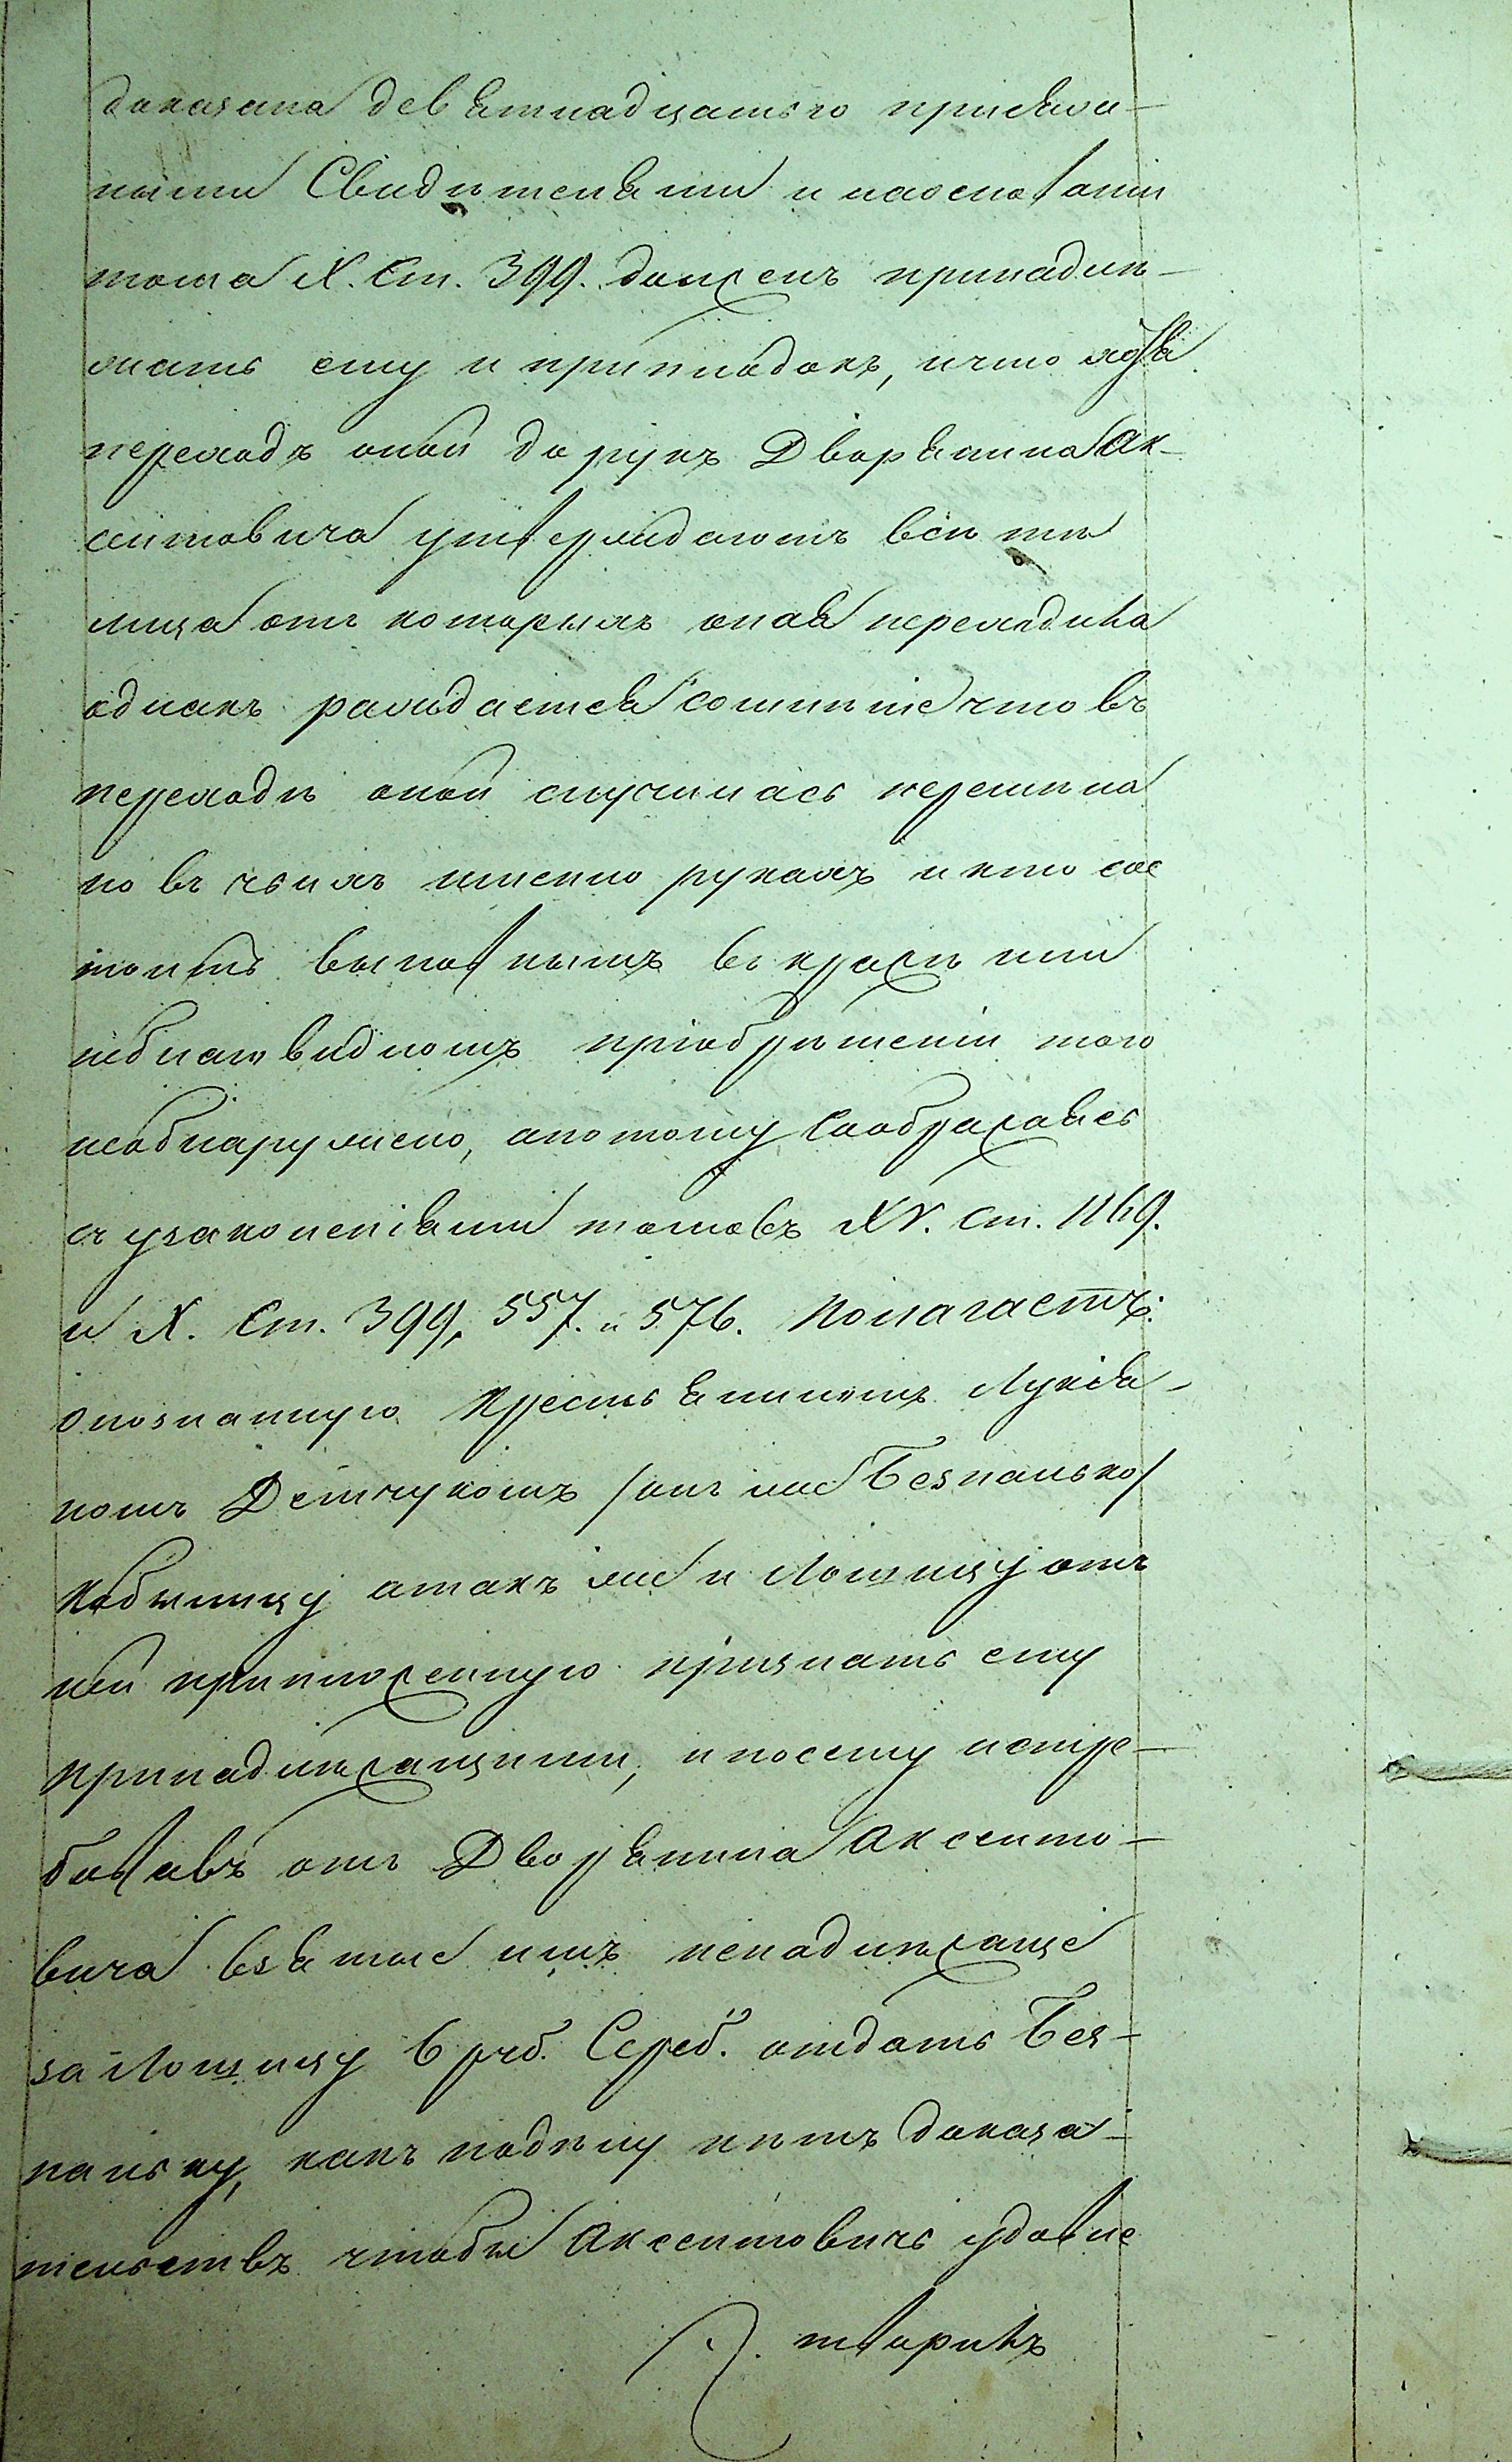 доказана девятнадцатьго присяж-
ными Свидѣтелями и наосновании
тома X. Ст. 399. долженъ принадлѣ-
жать ему и приплодокъ, ичто хотя
переходъ оной до рукъ Дворянина Ак-
сентовича утверждаютъ всѣ тѣ
лица отъ которыхъ оная переходила
однакъ раждается сомнѣніе что въ
переходѣ оной случилась перемѣна
но въ чьихъ именно рукахъ и кто сос
тоитъ выновнымъ въ кражѣ или
неблаговидномъ пріобрѣтеніи того
необнаружено, апотому Соображаясь
съ узаконеніями томовъ XV. Ст. 1169.
и X. Ст. 399, 557. и 576. Полагаетъ:
опознанную Крестьяниномъ Лукья-
номъ Демчукомъ /онъ же Безпалько/
Кобылицу атакъ же и Лошицу отъ
ней припложенную признать ему
принадлѣжащими, и посему истре-
бовавъ отъ Дворянина Аксенто-
вича взятые имъ ненадлѣжаще
за Лошицу 6 руб. Сереб. отдать Без-
пальку, какъ подѣлу нѣтъ доказа-
тельствъ чтобы Аксентовичъ удовле
творилъ